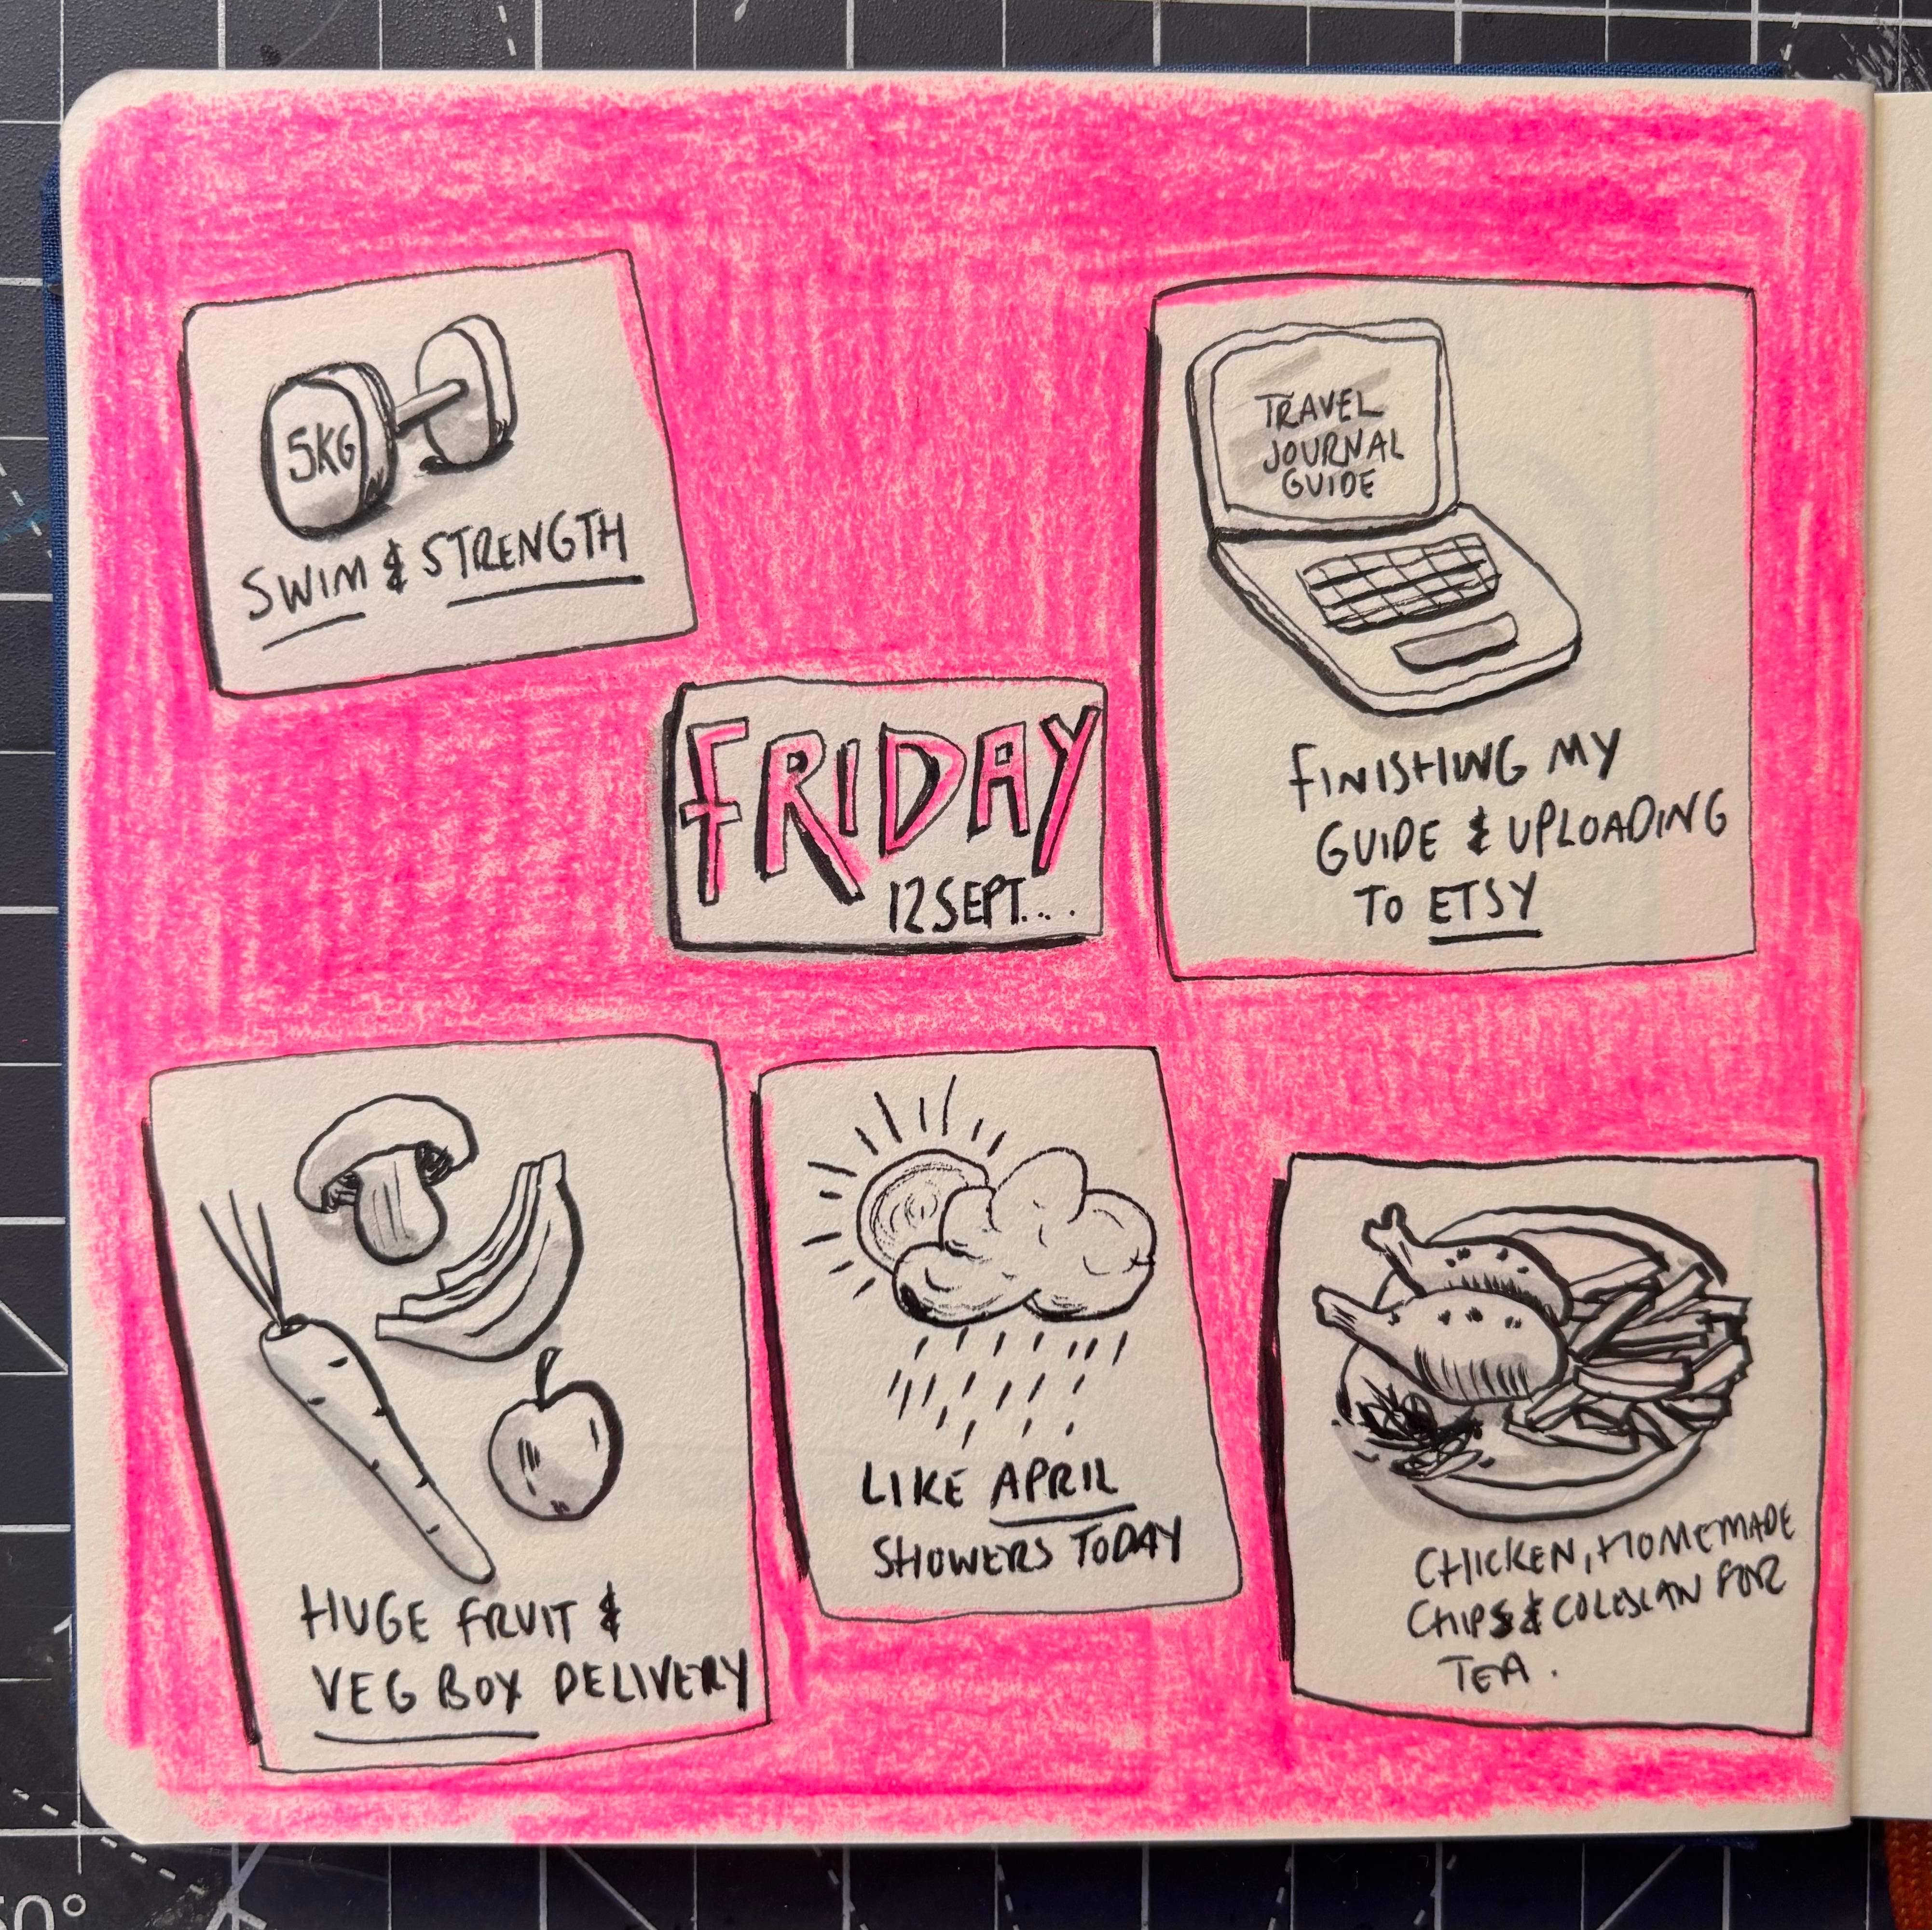 5KG
SWIM & STRENGTH
TRAVEL
JOURNAL
GUIDE
FINISHING MY
GUIDE & UPLOADING
TO ETSY
FRIDAY
12 SEPT....
HUGE FRUIT &
VEG BOX DELIVERY
LIKE APRIL
SHOWERS TODAY
CHICKEN, HOMEMADE
CHIPS & COLESLAW FOR
TEA.
50°